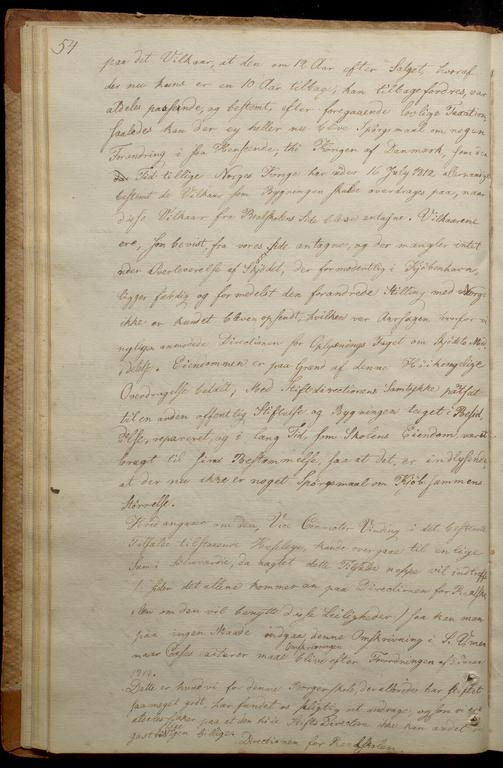 54
paa det Vilkaar, at den om 12 Aar efter Salget, hvoraf
der nu kuns er en 10 Aar tilbage, kan tilbagefordres, var
aldeles passende, og bestemt, efter foregaaende lovlige Taxation,
saaledes kan der ey heller nu blive Spørgsmaal om nogen
Forandring i saa Henseende, thi Kongen af Danmark, som den
Tid tillige Norges Konge har under 16 July 1812 allernaadigst
bestemt de Vilkaar som Bygningen skulde overdrages paa, naar
disse Vilkaar fra Realskolens Side bleve antagne. Vilkaarene
ere, som bevist, fra vores Side antagne, og der mangler intet
uden Overleverelse af Skjødet, der formodentlig i Kjøbenhavn,
ligger færdig og formedelst den forandrede Stilling med Norge
ikke er kundet bleven opsendt, hvilken var Aarsagen hvorfor vi
nyligen anmodede Directionen for Oplysnings Faget om Skjødets Med
delelse. Eiendommen er paa Grund af denne Høikongelige
Overdragelse betalt, med Stiftsdirectionens Samtykke pantsat
til en anden offentlig Stiftelse og Bygningen taget i Besid
delse, repareret, og i lang Tid, som Skolens Eiendom, været
bragt til sin Bestemmelse, saa at det er indlysende
at der nu ikke er noget Spørgsmaal om Kjøbesummens
Størrelse.
Hvad angaaer om den, Vice Conrector Vinding i det bestemte
Tilfælde tilstaaende Huusleye, kunde overgaae til en lige
Sum i Sølvværdie, da uagtet dette Tilfælde neppe vil indtræffe
siden det allene kommer an paa Directionen for Realsko
len om den vil benytte disse Leiligheder / saa kan man
paa ingen Maade indgaae denne Omskrivning i
naar maae Omskrivningen blive efter Forordningen af
Dette er hvad vi for denne Borgerskole, der allerede har stiftet
saa meget godt, har fundet os pligtig at andrage, og som vi
aldeles sikker paa at den høie Stifts Direction ikke kan andet
billige.
Directionen for Realskolen.